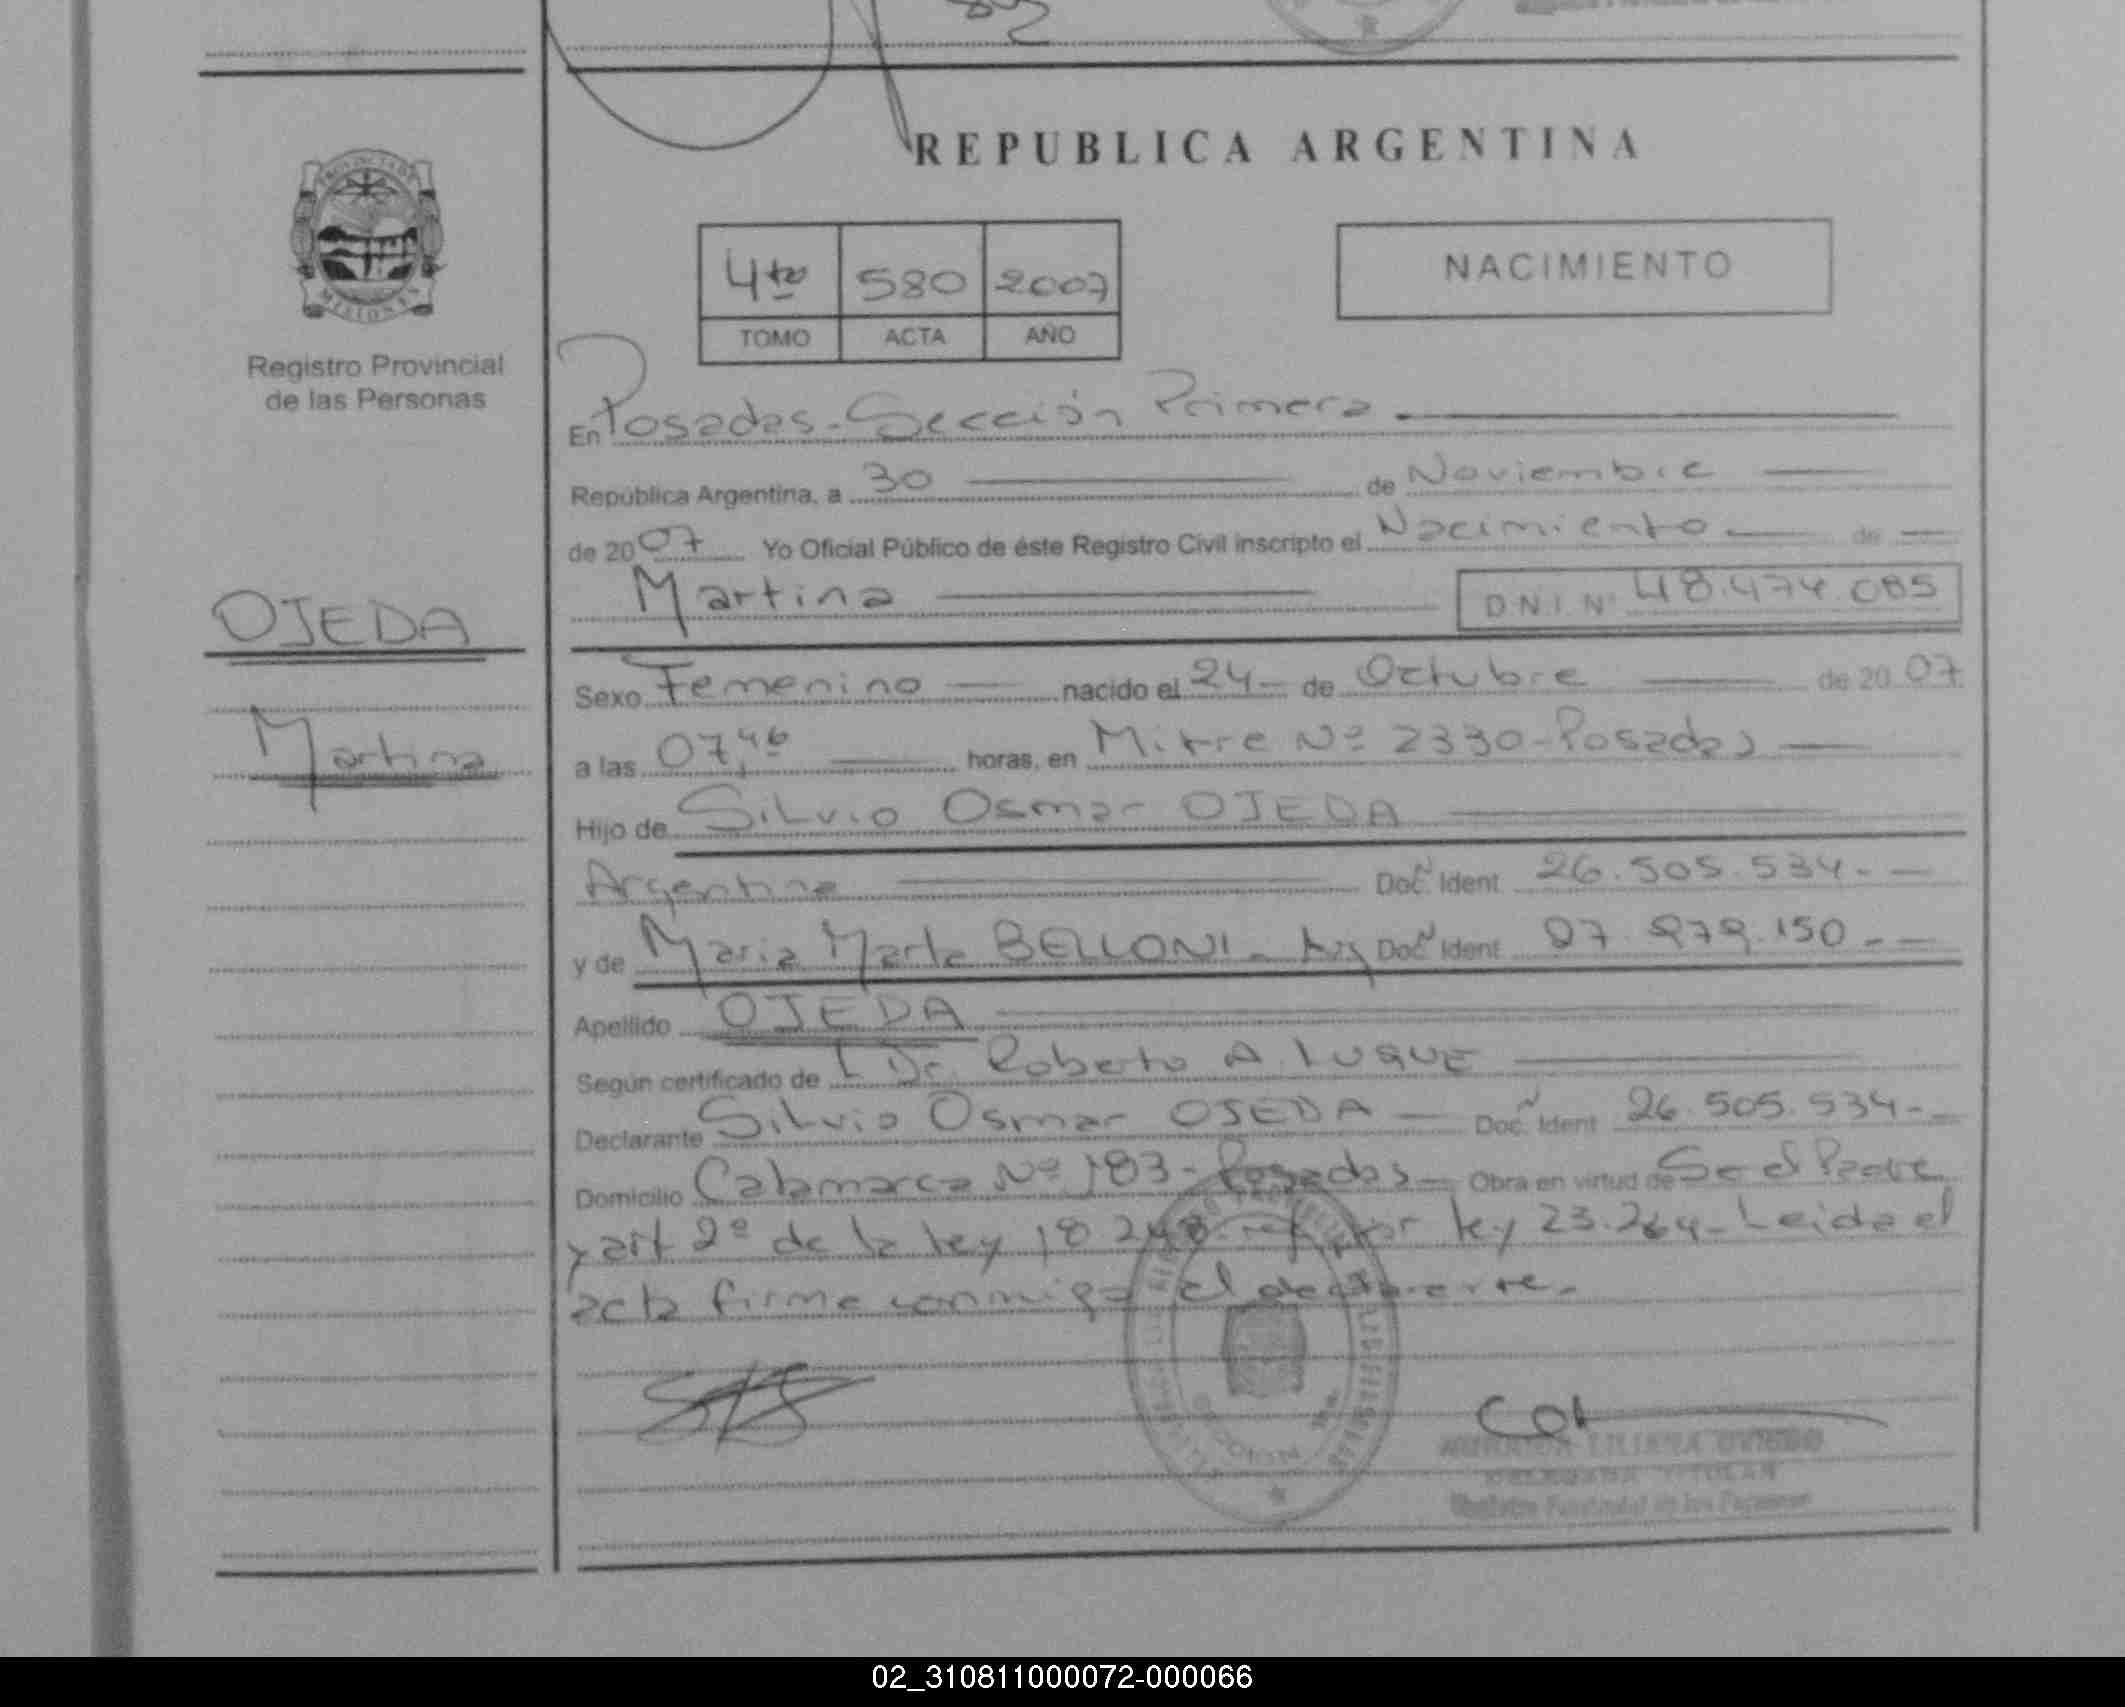 REPUBLICA ARGENTINA
PROVINCIA DE
MISIONES
Registro Provincial
de las Personas
4to 580 2007
TOMO ACTA AÑO
NACIMIENTO
OJEDA
Martina
En Posadas - Sección Primera
República Argentina, a 30 de Noviembre
de 2007 Yo Oficial Público de éste Registro Civil inscripto el Nacimiento de
Martina D.N.I. Nº 48.474.085
Sexo Femenino nacido el 24 de Octubre de 2007
a las 07,46 horas, en Mitre Nº 2330 - Posadas
Hijo de Silvio Osmar OJEDA
Argentina Doc. Ident 26.505.534.-
y de Maria Marta BELLONI - Arg Doc. Ident 27.879.150.-
Apellido OJEDA
Según certificado de Dr. Roberto A. LUQUE
Declarante Silvio Osmar OJEDA Doc. Ident 26.505.534.-
Domicilio Catamarca Nº 183 - Posadas Obra en virtud de Se el Padre
y art 2º de la ley 18.248 por ley 23.264 - Leida el
acta firma conmigo el declarante.
LILIANA OVIEDO
DELEGADA TITULAR
Registro Provincial de las Personas
02_310811000072-000066